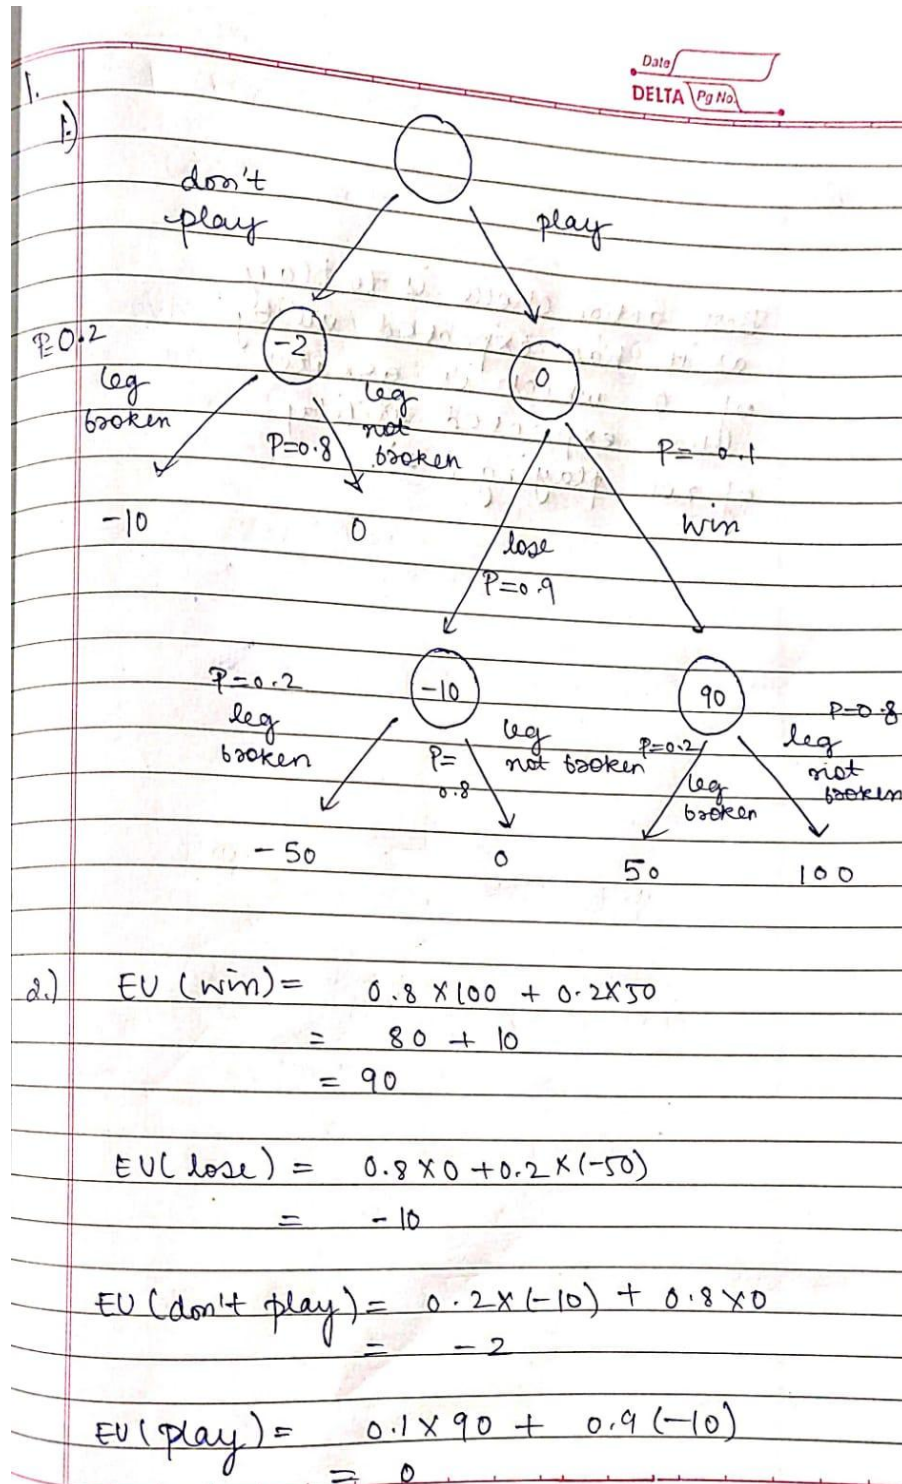 Date
DELTA Pg No.
1.
1.)
don't
play
play
P=0.2
-2
0
leg
broken
leg
not
broken
P=0.8
P= 0.1
-10
0
lose
P=0.9
win
P=0.2
leg
broken
-10
90
P=0.8
leg
not broken
P=
0.8
P=0.2
leg
broken
leg
not
broken
-50
0
50
100
2.) EU (win) = 0.8 X 100 + 0.2X50
= 80 + 10
= 90
EU( lose) = 0.8 X0 +0.2 X (-50)
= -10
EU (don't play) = 0.2X (-10) + 0.8 X0
= -2
EU( play) = 0.1 X 90 + 0.9 (-10)
= 0